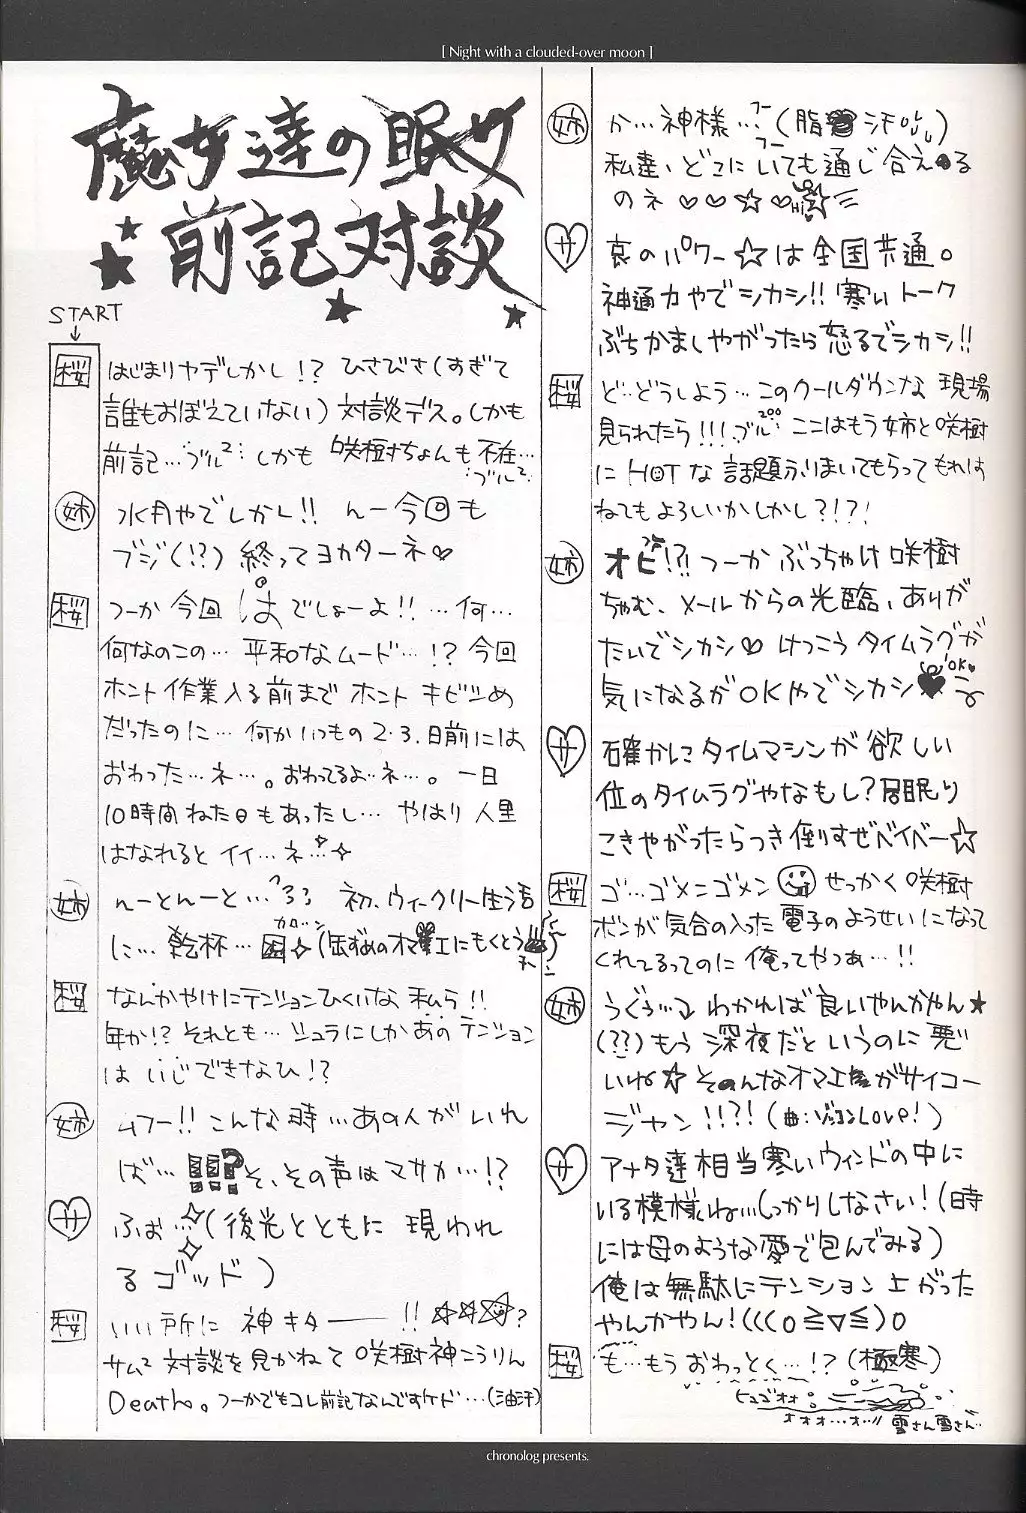 [ Night with a clouded-over moon ]
魔女達の眠り
前記対談
START
桜 はじまりヤデしかし!? ひさびさ(すぎて
誰もおぼえていない) 対談デス。しかも
前記…ブル² しかも 咲樹ちょんも不在…
ブル²
姉 水月やでしかし!! んー今回も
ブジ(!?) 終ってヨカターネ♡
桜 つーか今回はでしょーよ!! …何…
何なのこの… 平和なムード…!? 今回
ホント作業入る前まで ホント キビシめ
だったのに… 何かいつもの2・3.日前には
おわった…ネ…。おわってるよ…ネ…。一日
10時間ねた日もあったし… やはり人里
はなれると イイ…ネ…
姉 んーとんーと… 初、ウィークリー生活
に… 乾杯…
桜 なんかやけにテンションひくいな 私ら!!
年か!? それとも… シュラにしかあのテンション
は いじできなひ!?
姉 ムフー!! こんな時…あの人がいれ
ば… !!!? そ、その声はマサカ…!?
サ ふぉ…(後光とともに 現われ
るゴッド)
桜 いい所に 神キター――!! ☆☆☆?
サム² 対談を見かねて咲樹神こうりん
Death。つーかでもコレ前記なんですケド…(油汗)
姉 か…神様…(脂汗)
私達、どこにいても通じ合える
のネ♡♡☆♡ Hi
サ 哀のパワー☆は全国共通。
神通力やでシカシ!! 寒いトーク
ぶちかましやがったら怒るでシカシ!!
桜 ど…どうしよう…このクールダウンな 現場
見られたら!!! ブル²⁰⁰ ここはもう姉と咲樹
にHOTな話題ふりまいてもらってもれは
ねてもよろしいかしかし?!?!
姉 オビ!?! つーか ぶっちゃけ咲樹
ちゃむ、メールからの光臨、ありが
たいでシカシ♡ けっこうタイムラグが
気になるがOKやでシカシ♥ OK
サ 確かにタイムマシンが欲しい
位のタイムラグやなもし? 居眠り
こきやがったらつき倒すぜベイベー☆
桜 ゴ…ゴメンニゴメン せっかく咲樹
ボンが気合の入った電子のようせいになって
くれてるってのに 俺ってやつぁ…!!
姉 うぐぅ… わかれば良いやんかやん★
(??)もう深夜だというのに悪
いね☆ そのんなオマエがサイコー
ジャン!!?! (Love!)
サ アナタ達相当寒いウィンドの中に
いる模様ね…しっかりしなさい! (時
には母のような愛で包んでみる)
俺は無駄にテンション上がった
やんかやん! (((o≧▽≦)o
桜 も…もうおわっとく…!? (極寒)
ヒュゴオオ
オオオ…オ…!! 雪さん雪さん…
chronolog presents.